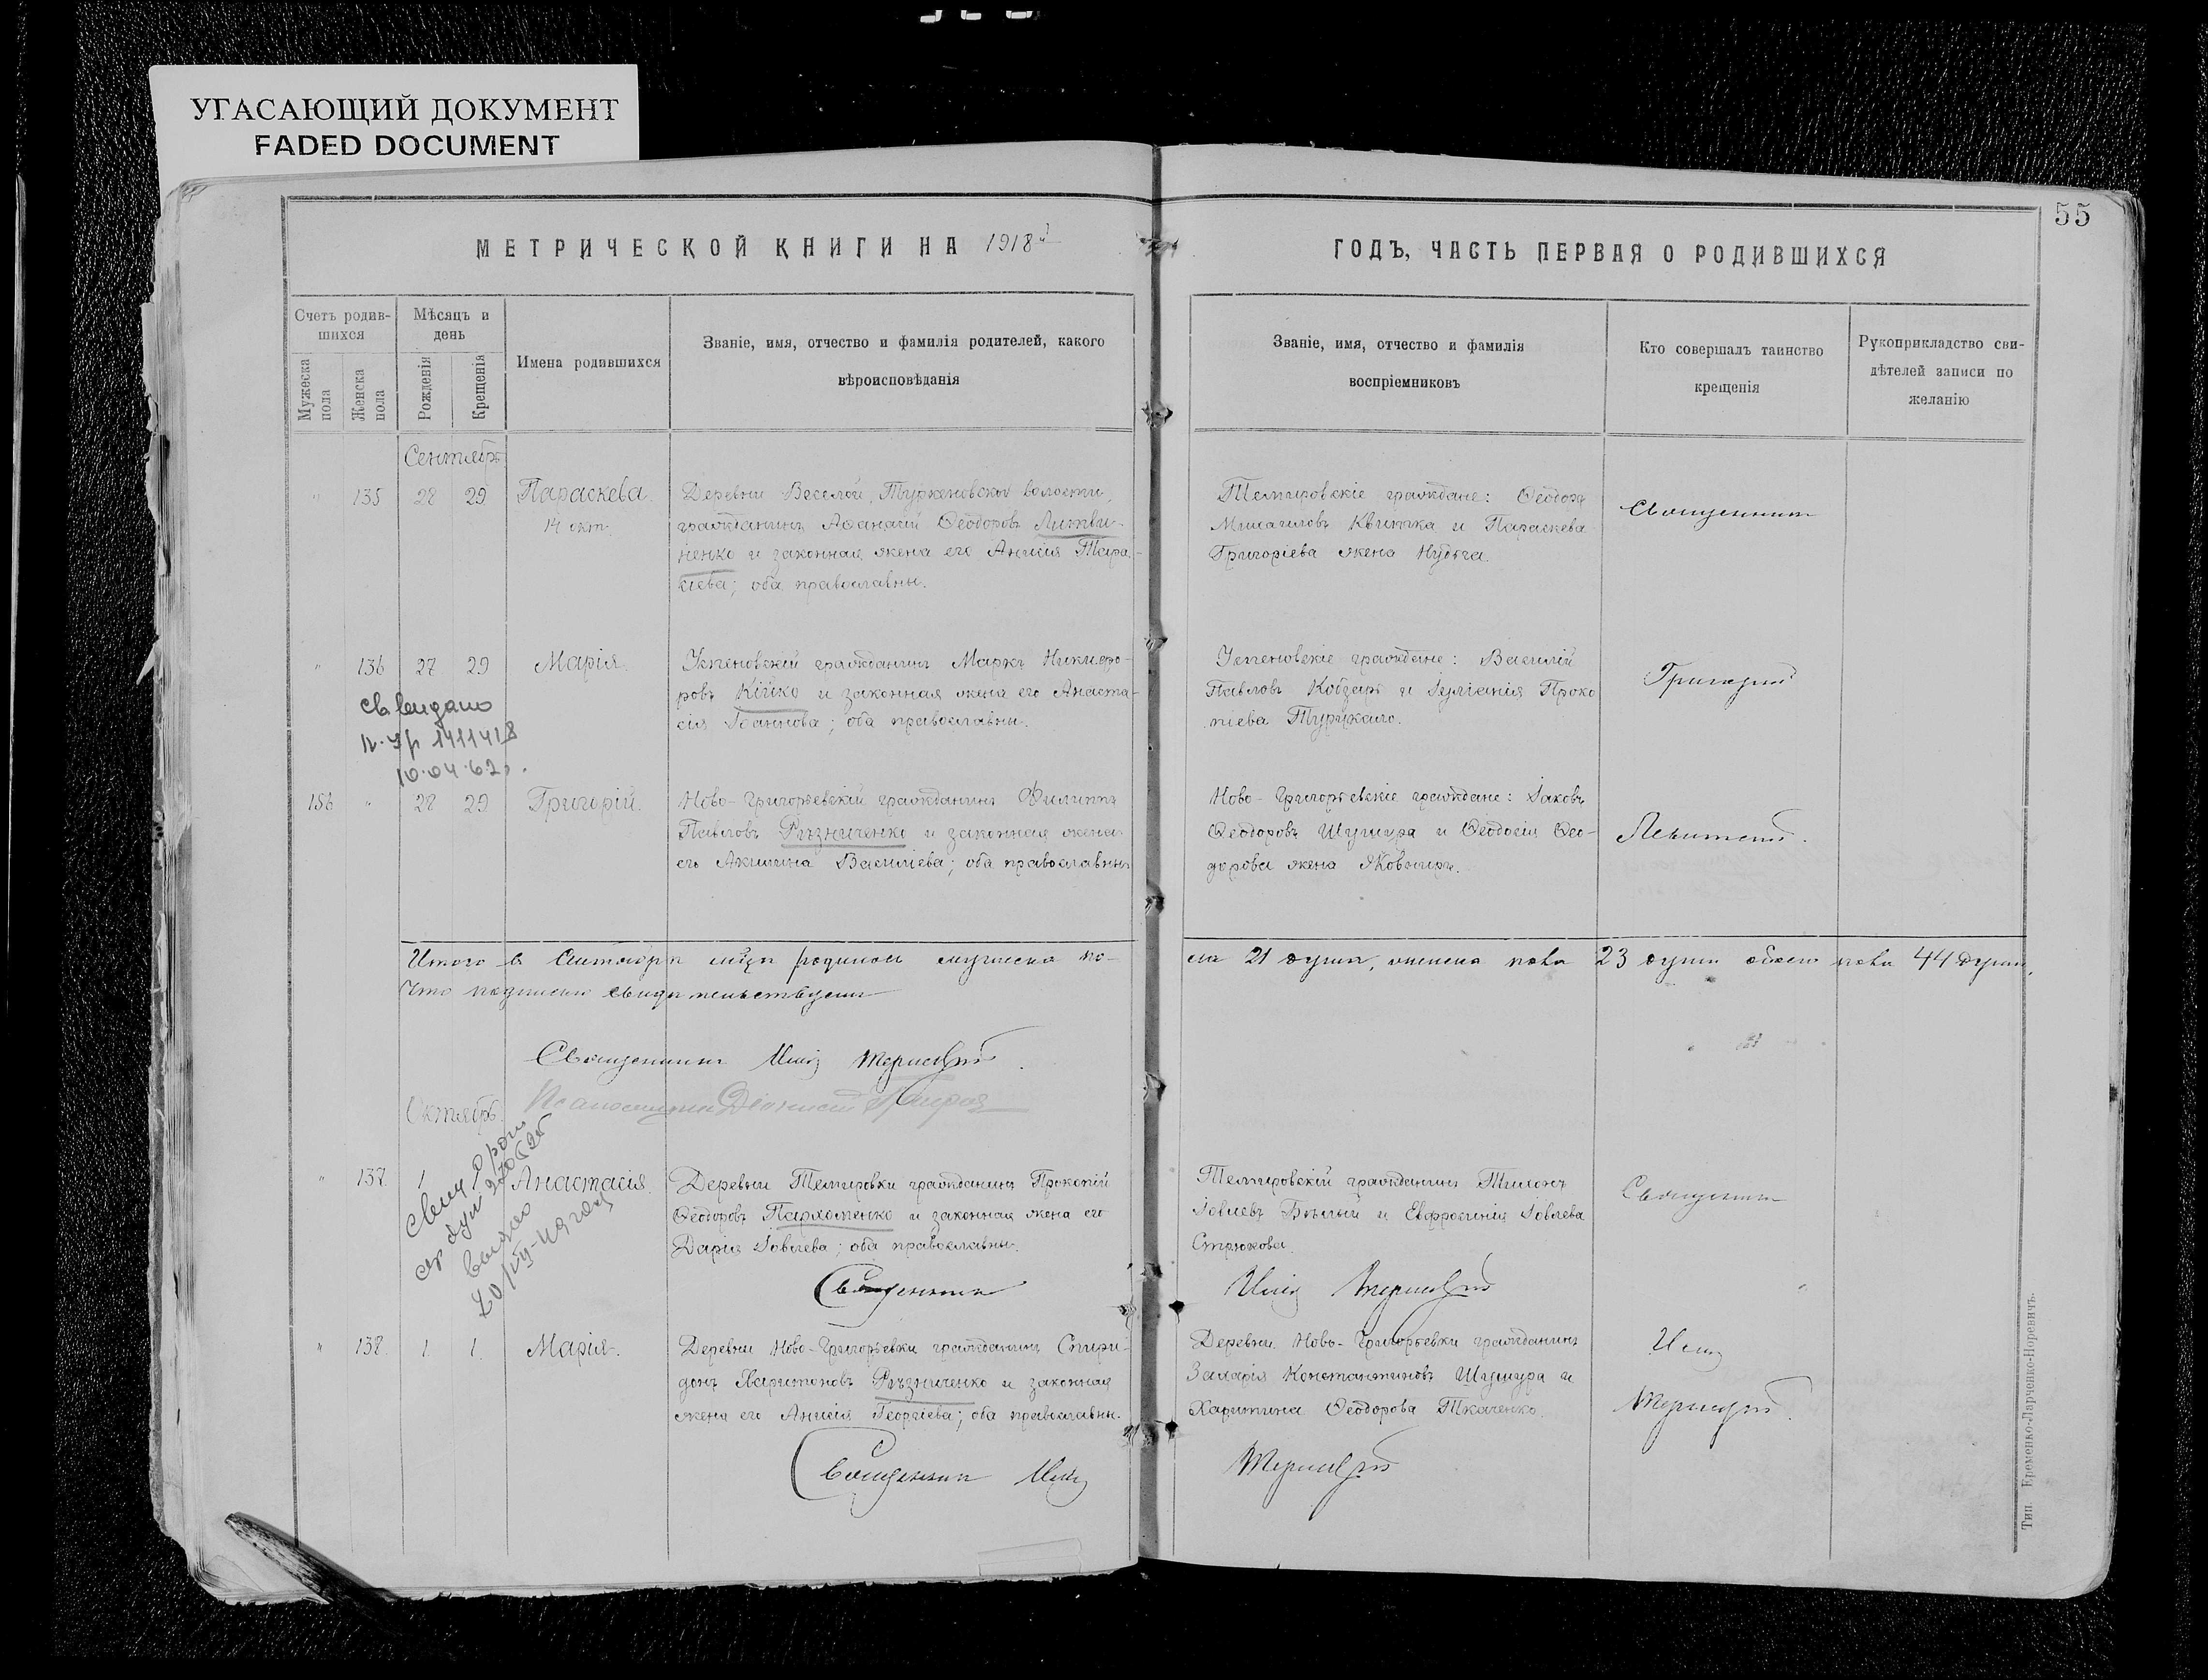 УГАСАЮЩИЙ ДОКУМЕНТ
FADED DOCUMENT
55
МЕТРИЧЕСКОЙ КНИГИ НА 1918й
ГОДЪ, ЧАСТЬ ПЕРВАЯ О РОДИВШИХСЯ
Счетъ родив-
шихся
Мужеска
пола
Женска
пола
Мѣсяцъ и
день
Рожденія
Крещенія
Имена родившихся
Званіе, имя, отчество и фамилія родителей, какого
вѣроисповѣданія
Званіе, имя, отчество и фамилія
воспріемниковъ
Кто совершалъ таинство
крещенія
Рукоприкладство сви-
дѣтелей записи по
желанію
Сентябрь
" 135 28 29 Параскева
14 окт.
Деревни Веселой, Туркеновской волости,
гражданинъ Аѳанасій Ѳеодоровъ Литви-
ненко и законная жена его Анисія Тара-
сіева; оба православны.
Темировскіе граждане: Ѳеодоръ
Михаиловъ Квитка и Параскева
Григоріева жена
Священникъ
" 136 27 29 Марія
Успеновскій гражданинъ Маркъ Никифо-
ровъ Кійко и законная жена его Анаста-
сія Іоаннова; оба православны.
Успеновскіе граждане: Василій
Павловъ Кобзарь и Іуліанія Проко
піева Турукало.
св выдано
1411418
10.04.62г.
156 " 28 29 Григорій.
Ново-Григорьевскій гражданинъ Филиппъ
Павловъ Рѣзниченко и законная жена
его Акилина Василіева; оба православны
Ново-Григорьевскіе граждане: Іаковъ
Ѳеодоровъ Шушура и Ѳеодосія Ѳео-
дорова жена
Итого в Сентябрѣ мцѣ родилось мужеска по-
ла 21 душа, женска пола 23 души обоего пола 44 души,
Что подписью свидѣтельствуемъ
Священникъ Илія
Псаломщикъ Діонисій
Октябрь
" 137. 1 Анастасія.
Деревни Темировки гражданинъ Прокопій
Ѳеодоровъ Пархоменко и законная жена его
Дарія Іовлева; оба православны.
Темировскій гражданинъ Тихонъ
Іовлевъ Бѣлый и Евфросинія Іовлева
Стрюкова.
Священникъ
выдано
Священникъ
Илія
" 138. 1. 1. Марія.
Деревни Ново-Григорьевки гражданинъ Спири-
донъ Харитоновъ Рѣзниченко и законная
жена его Анисія Георгіева; оба православны.
Деревни Ново-Григорьевки гражданинъ
Захарія Константиновъ Шушура и
Харитина Ѳеодорова Ткаченко.
Илія
Священникъ Илія
Тип. Еременко-Ларченко-Норевичъ.